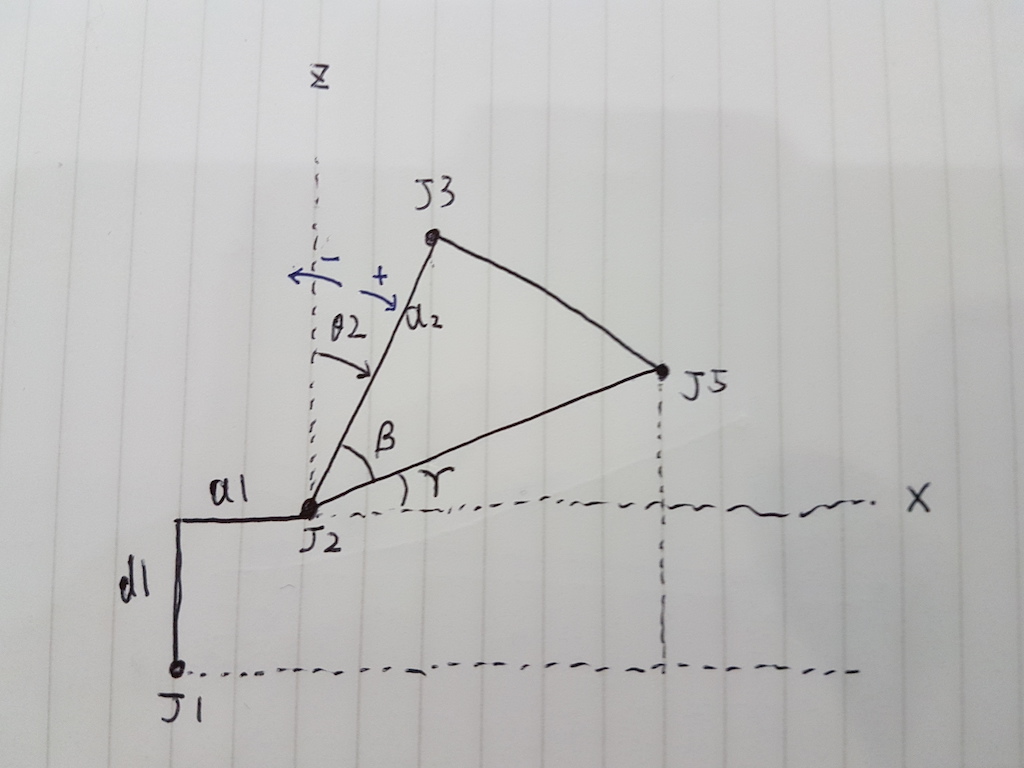 z
J3
- +
θ2
a2
J5
β
γ
a1
X
J2
d1
J1